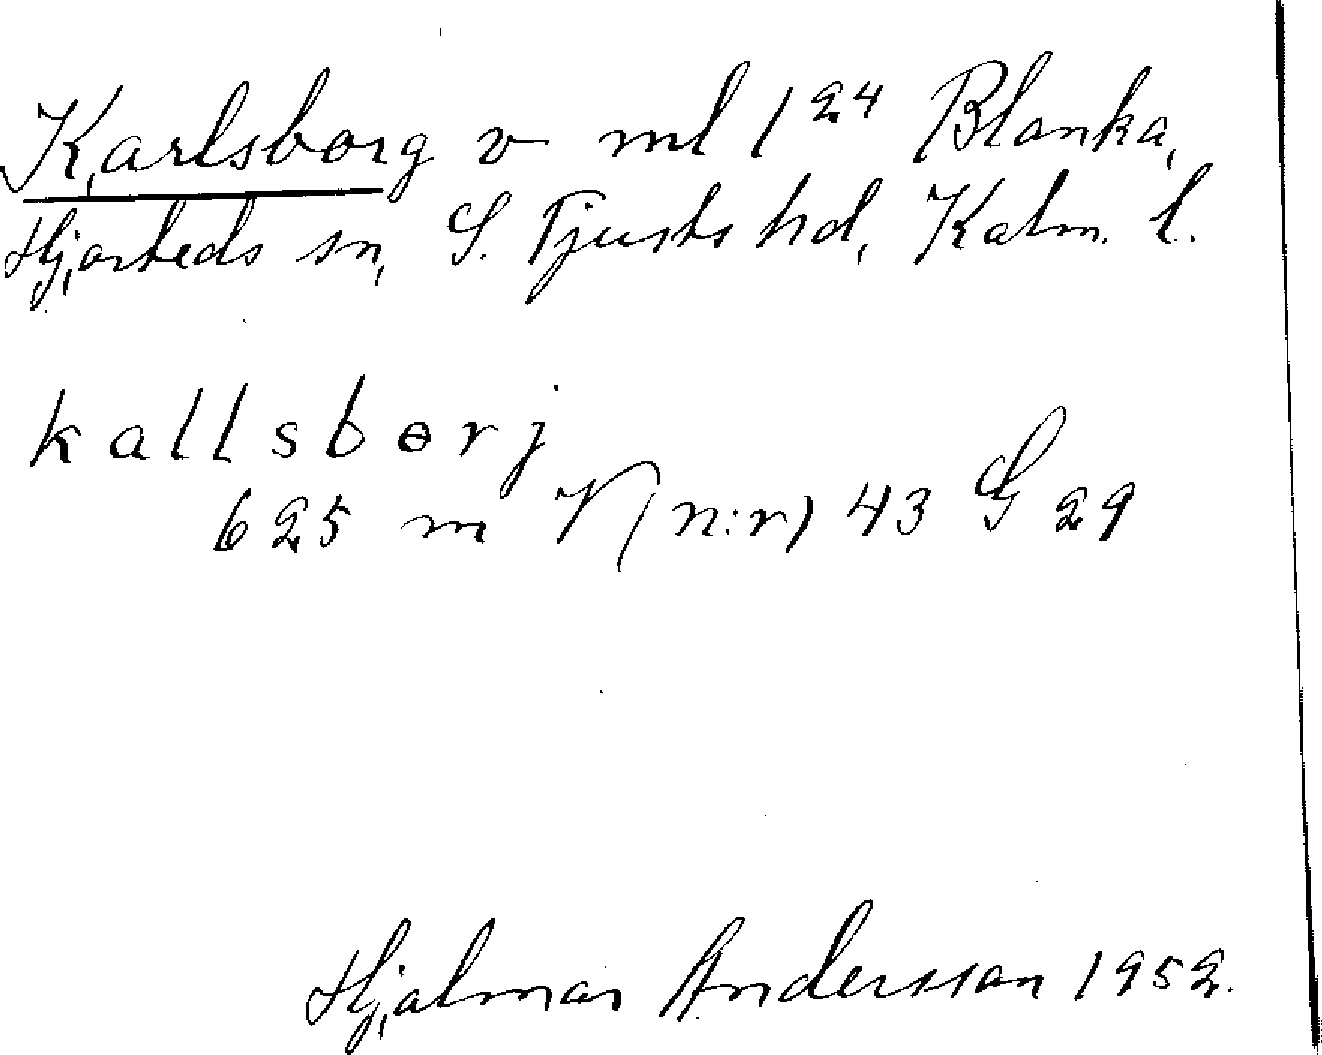 Karlsborg v ml 1²⁴ Blanka,
Hjorteds sn, S. Tjusts hd, Kalm. l.
kallsbɵrj
625 m V (n:r) 43 G 29
Hjalmar Andersson 1952.